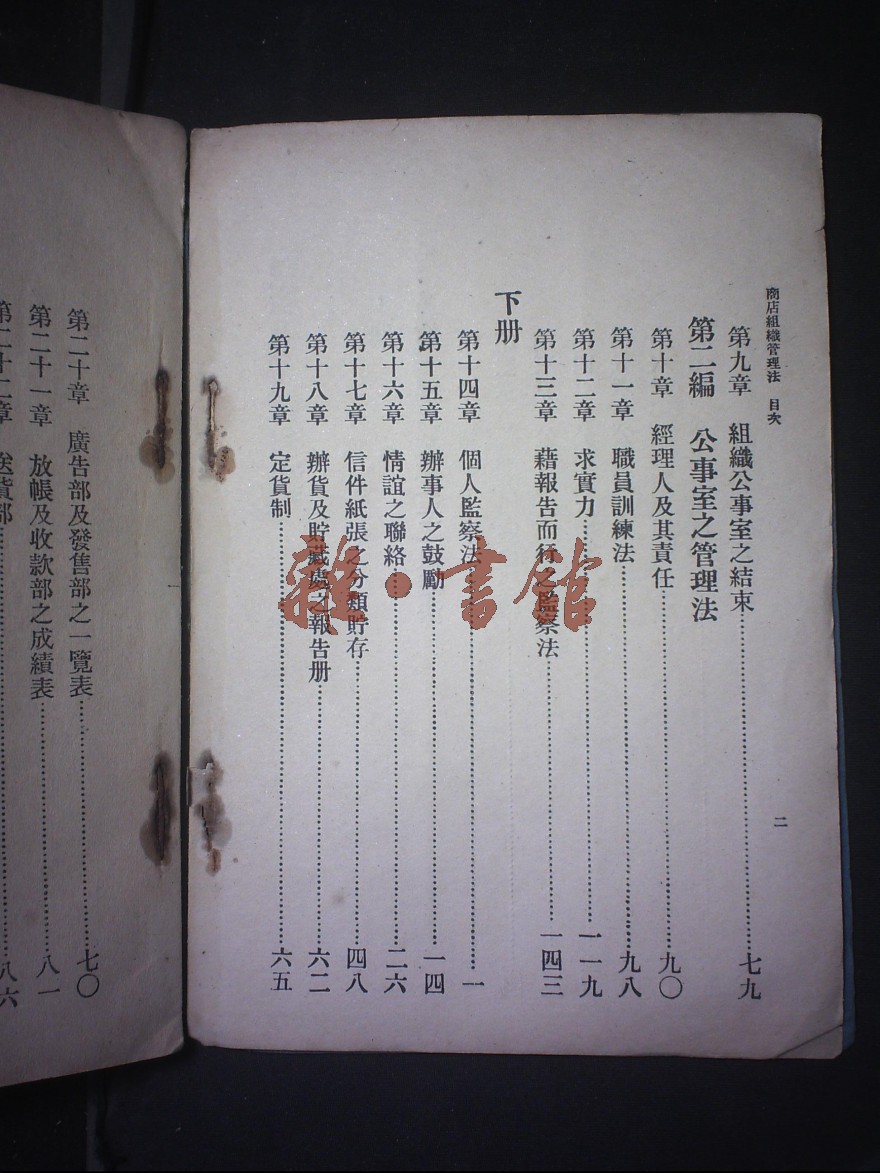 商店組織管理法 目次
二
第九章 組織公事室之結束 七九
第二編 公事室之管理法
第十章 經理人及其責任 九〇
第十一章 職員訓練法 九八
第十二章 求實力 一一九
第十三章 藉報告而行之監察法 一四三
下册
第十四章 個人監察法 一
第十五章 辦事人之鼓勵 一四
第十六章 情誼之聯絡 二六
第十七章 信件紙張之分類貯存 四八
第十八章 辦貨及貯藏處之報告册 六二
第十九章 定貨制 六五
第二十章 廣告部及發售部之一覽表 七〇
第二十一章 放帳及收款部之成績表 八一
第二十二章 送貨部 八六
雜·書館